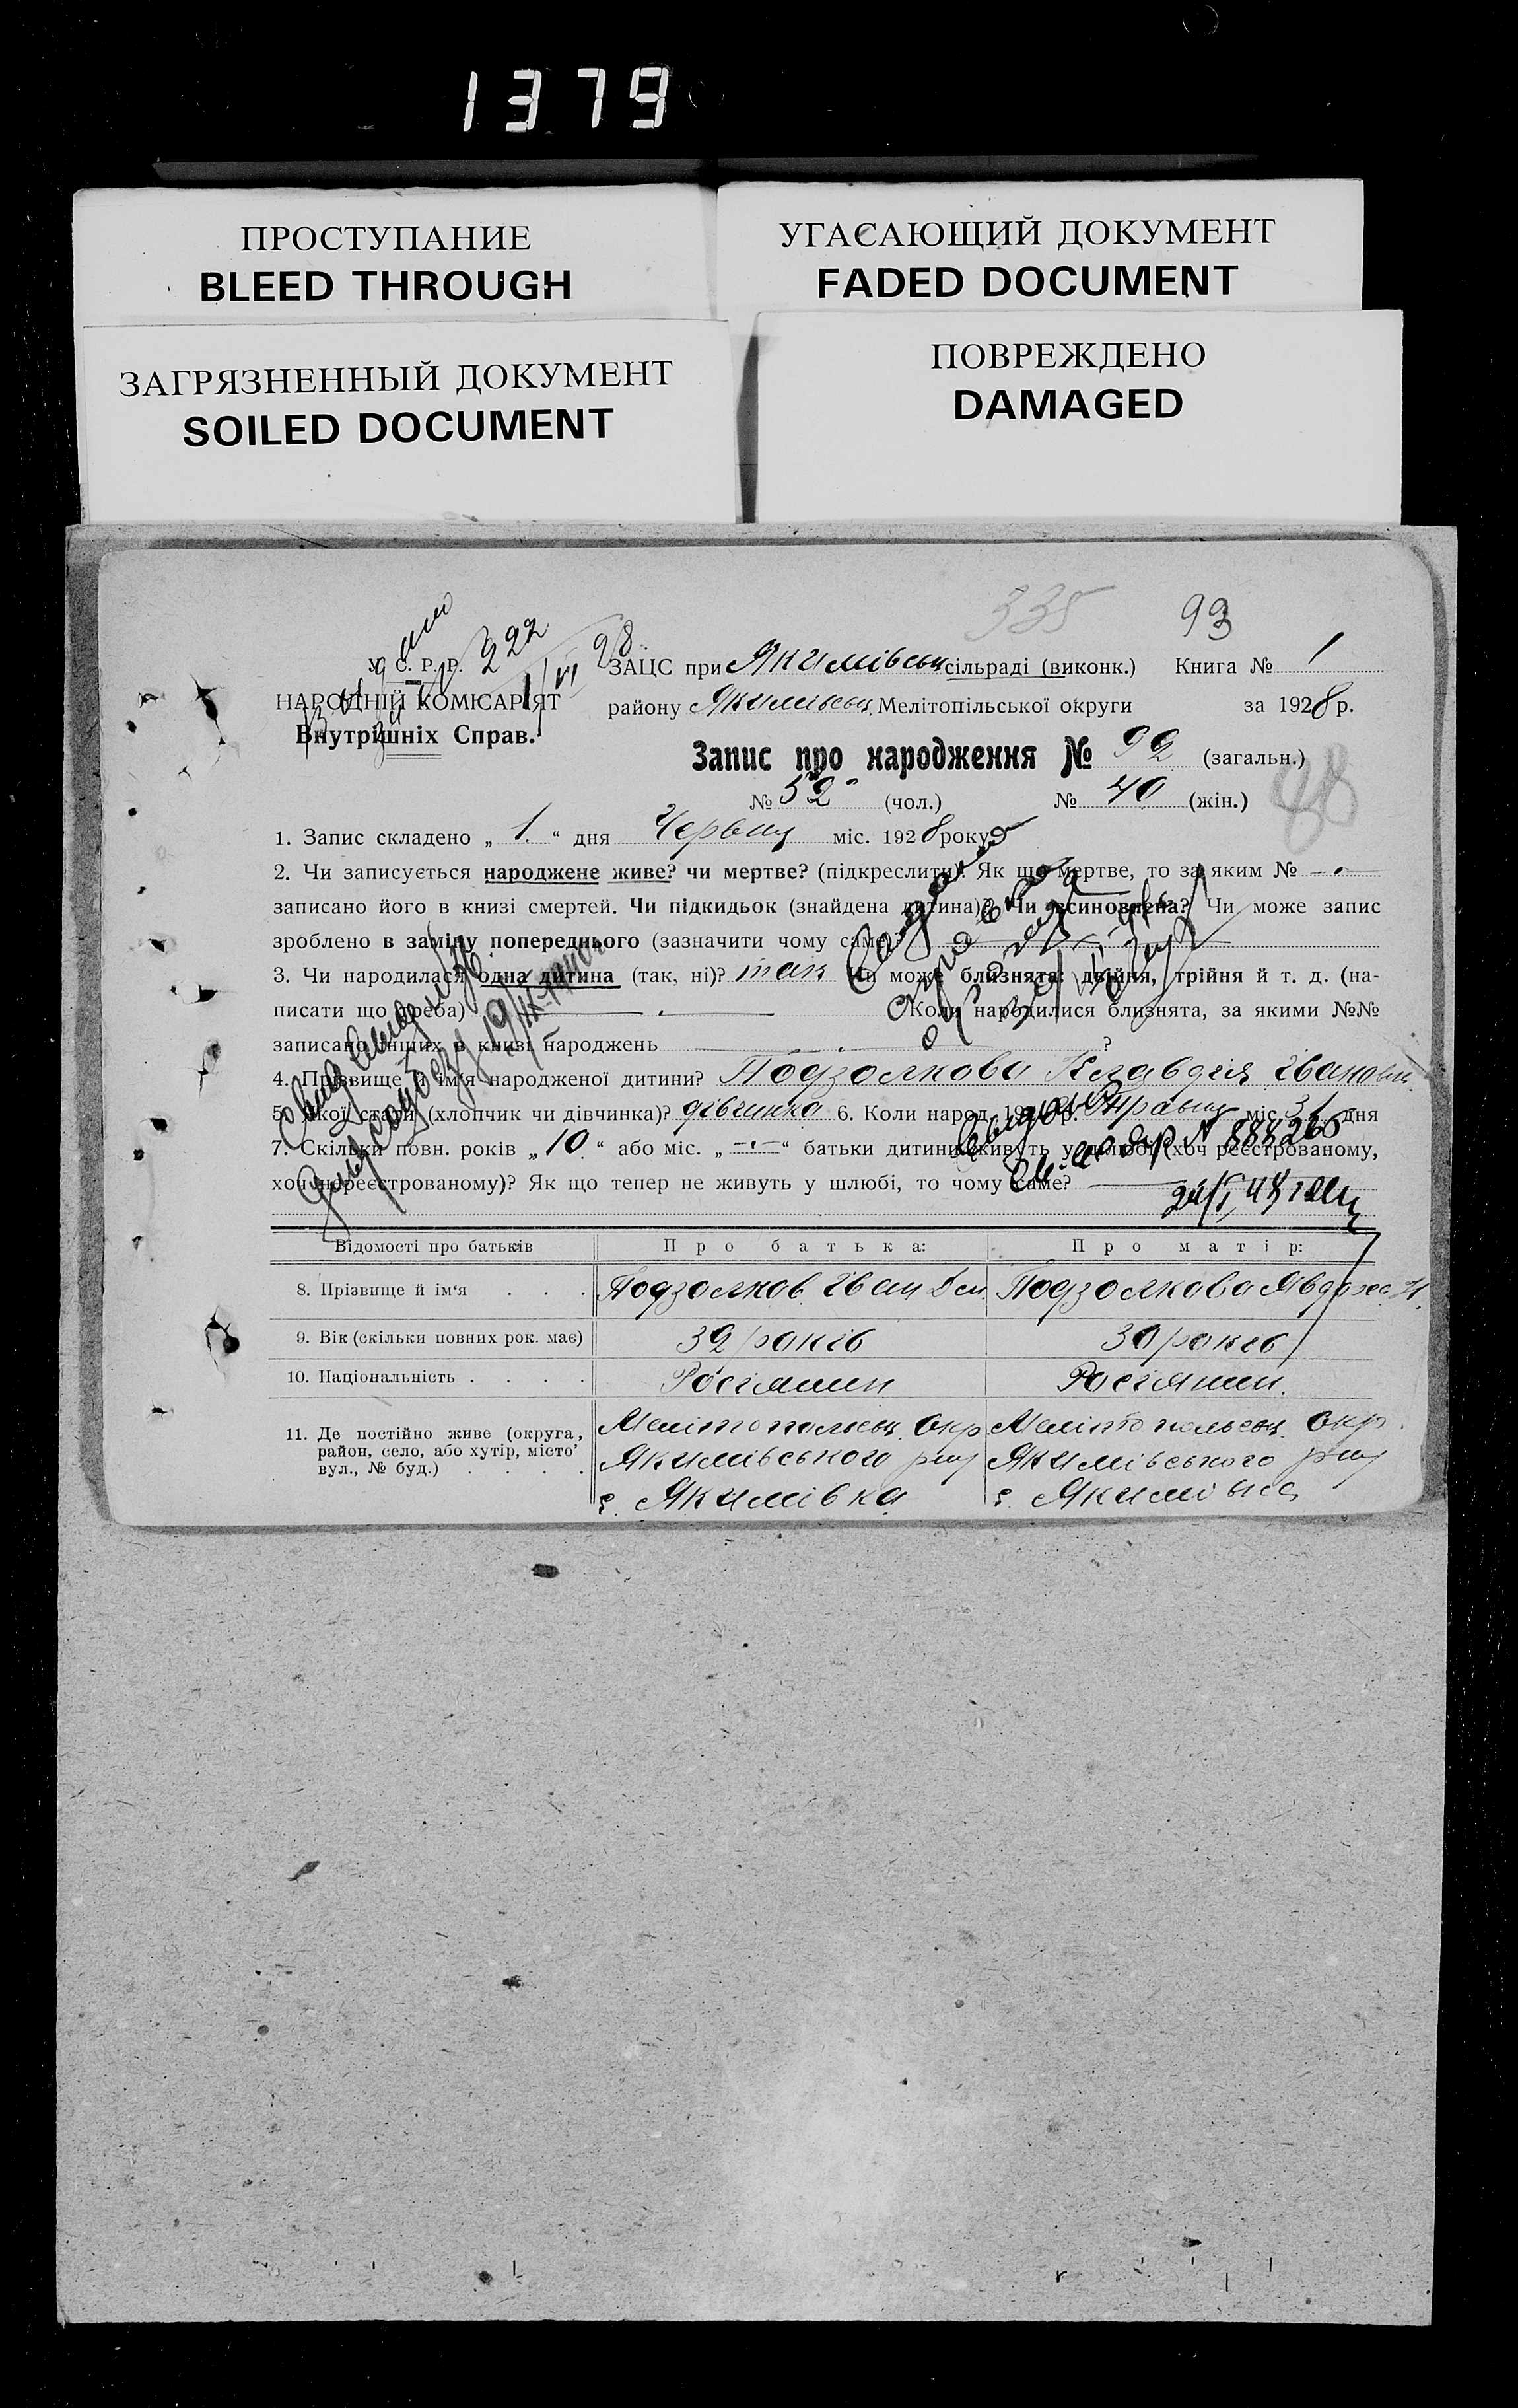 1379
ПРОСТУПАНИЕ
BLEED THROUGH
УГАСАЮЩИЙ ДОКУМЕНТ
FADED DOCUMENT
ЗАГРЯЗНЕННЫЙ ДОКУМЕНТ
SOILED DOCUMENT
ПОВРЕЖДЕНО
DAMAGED
335 93
У. С. Р. Р. 222
НАРОДНІЙ КОМІСАРІЯТ
Внутрішніх Справ.
28
ЗАЦС при Якимівськ сільраді (виконк.) Книга № 1
району Якимівськ Мелітопільської округи за 1928 р.
Запис про народження № 92 (загальн.)
№ 52 (чол.) № 40 (жін.)
88
1. Запис складено „ 1. “ дня Червня міс. 1928 року
2. Чи записується народжене живе? чи мертве? (підкреслити). Як що мертве, то за яким № -
записано його в книзі смертей. Чи підкидьок (знайдена дитина)? Чи всиновлена? Чи може запис
зроблено в заміну попереднього (зазначити чому саме)?
3. Чи народилася одна дитина (так, ні)? так Чи може близнята: двійня, трійня й т. д. (на-
писати що треба) Коли народилися близнята, за якими №№
записано інших в книзі народжень ?
4. Прізвище й ім'я народженої дитини? Подзолкова Клавдія Івановн.
5. Якої стати (хлопчик чи дівчинка)? дівчинка 6. Коли народ. 192 р. Травня міс. 31 дня
7. Скільки повн. років „ 10 “ або міс. „ - “ батьки дитини живуть у шлюбі (хоч реєстрованому,
хоч нереєстрованому)? Як що тепер не живуть у шлюбі, то чому саме?
№ 884260
Відомості про батьків Про батька: Про матір:
8. Прізвище й ім'я . . . Подзолков Іван Подзолкова Явдоха
9. Вік (скільки повних рок. має) 32 років 30 років
10. Національність . . . . Росіянин Росіянин.
11. Де постійно живе (округа, Мелітопольськ Окр Мелітопольськ Окр
район, село, або хутір, місто, Якимівського р-ну Якимівського р-ну
вул., № буд.) . . . . с. Якимівка с. Якимівка